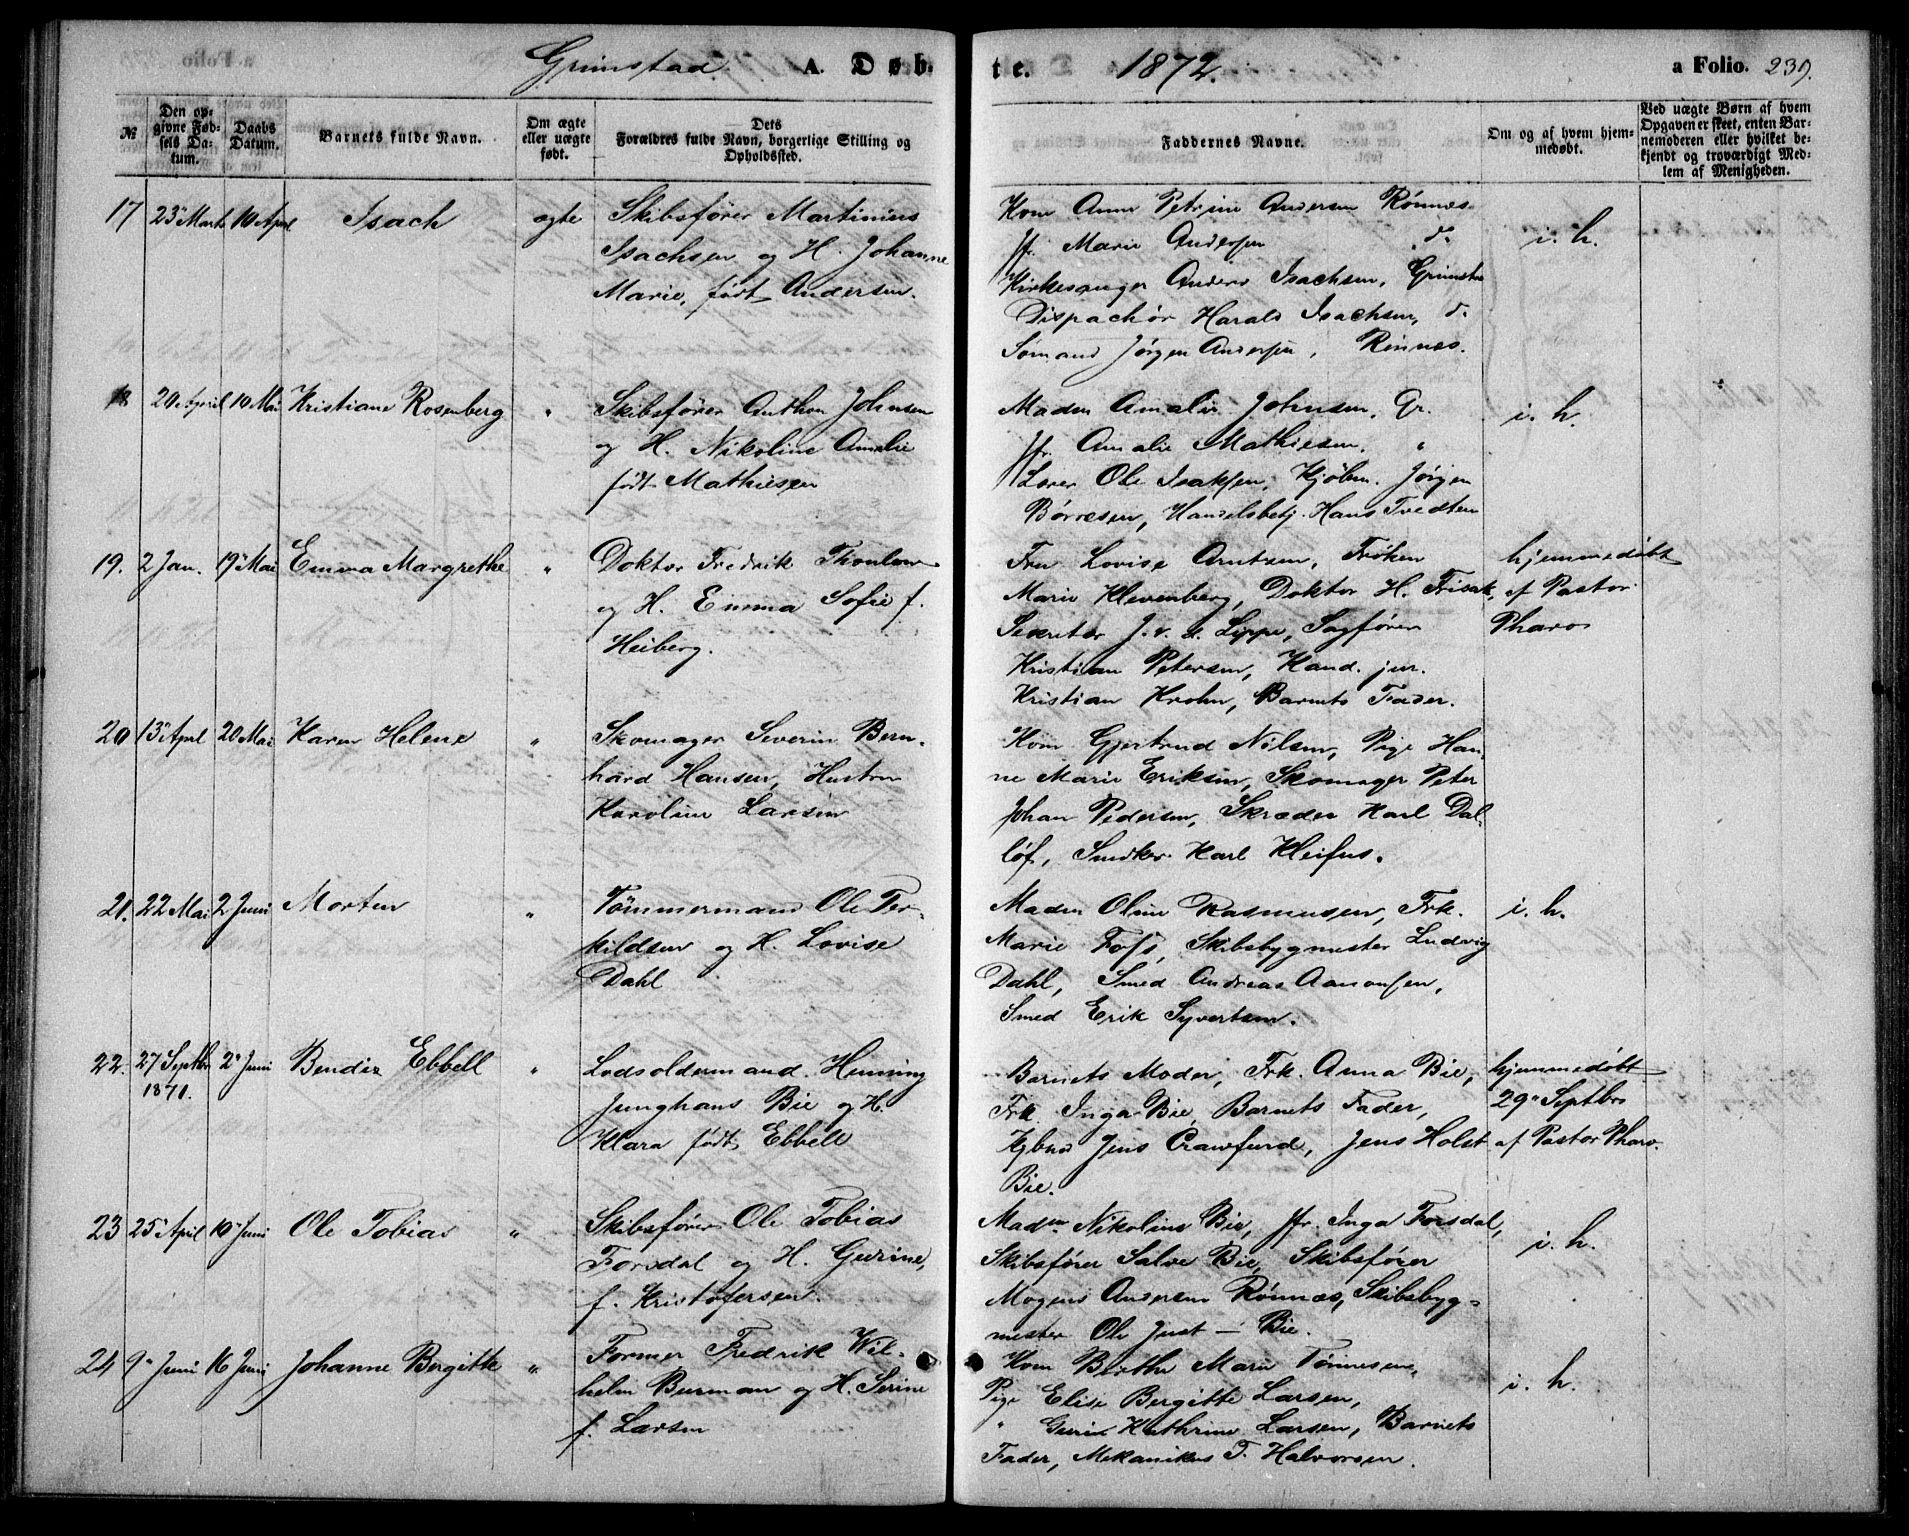 Grimstad. A. Døb- te. 1872. a Folio. 239.
№
Den op-
givne Fød-
sels Da-
tum.
Daabs
Datum.
Barnets fulde Navn.
Om ægte
eller uægte
født.
Dets
Forældres fulde Navn, borgerlige Stilling og
Opholdssted.
Faddernes Navne.
Om og af hvem hjem-
medøbt.
Ved uægte Børn af hvem
Opgaven er skeet, enten Bar-
nemoderen eller hvilket be-
kjendt og troværdigt Med-
lem af Menigheden.
17 23 Marts 10 April Isach ægte Skibsfører Martinius
Isachsen og H. Johanne
Marie, født Andersen.
Kone Anne Petrine Andersen Rønnes
Jfr. Marie Andersen do
Kirkesanger Anders Isachsen, Grimsta
Dispachør Harald Isachsen, do
Sømand Jørgen Andersen, Rønnes.
i. h.
18 20 April 10 Mai Kristiane Rosenberg " Skibsfører Anthon Johnsen
og H. Nikoline Amalie
født Mathiesen
Madm Amalie Johnsen, Gr.
Jfr. Amalie Mathiesen, "
Lærer Ole Isaksen, Kjøbm. Jørgen
Børresen, Handelsbetj. Hans Tvedten
i. h.
19. 2 Jan. 19 Mai Emma Margrethe " Doktor Fredrik Thonlow
og H. Emma Sofie f.
Heiberg.
Fru Lovise Arntzen, Frøken
Marie Klevenberg, Doktor H. Frisak,
Sekretær J. v. d. Lippe, Sagfører
Kristian Petersen, Kand. jur.
Kristian Krohn, Barnets Fader.
hjemmedøbt
af Pastor
Pharo
20 13 April 20 Mai Karen Helene " Skomager Severin Bern-
hard Hansen, Hustru
Karoline Larsen
Kone Gjertrud Nilsen, Pige Han-
ne Marie Eriksen, Skomager Peter
Johan Pedersen, Skræder Karl Dal-
løf, Snedker Karl Kleifus.
21. 22 Mai 2 Juni Morten " Tömmermand Ole Ter-
kildsen og H. Lovise
Dahl
Madm Oline Rasmusen, Frk.
Marie Foss, Skibsbygmester Ludvig
Dahl, Smed Andreas Aanonsen,
Smed Erik Syvertsen.
i. h.
22. 27 Septbr 1871. 2 Juni Bendix Ebbell " Lodsoldermand Henning
Junghans Bie og H.
Klara født Ebbell
Barnets Moder, Frk. Anna Bie,
Frk Inga Bie, Barnets Fader,
Kjbmd Jens Crawfurd, Jens Holst
Bie.
hjemmedøbt
29 Septbr
af Pastor Pharo.
23 25 April 10 Juni Ole Tobias " Skibsfører Ole Tobias
Forsdal og H. Gurine,
f. Kristofersen.
Madm Nikoline Bie, Jfr. Inga Forsdal,
Skibsfører Salve Bie, Skibsfører
Mogens Andersen Rønnes, Skibsbyg-
mester Ole Just — Bie.
i. h.
24 9 Juni 16 Juni Johanne Bergitte " Former Fredrik Wil-
helm Burman og H. Serine
f. Larsen
Kone Birthe Marie Tønnesen,
Pige Elise Bergitte Larsen,
" Gurine Kathrine Larsen, Barnets
Fader, Mekanikus T. Halvorsen.
i. h.